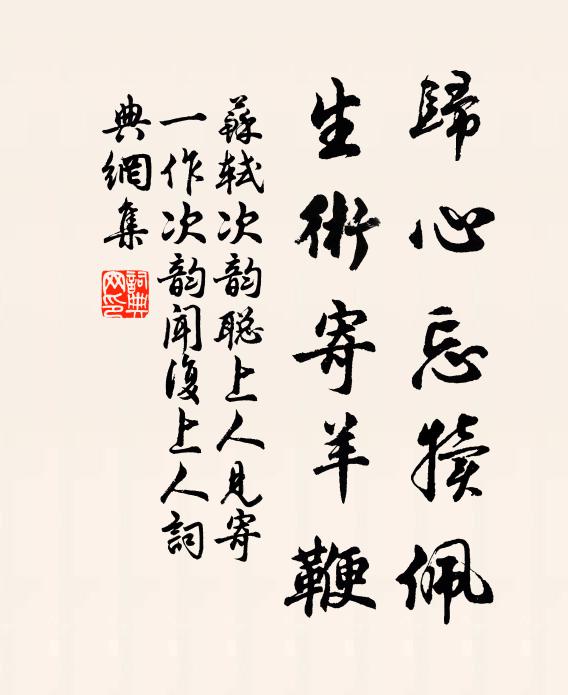 歸心忘犢佩
生術寄羊鞭
蘇軾次韵聪上人見寄
一作次韵闻復上人詞
典網集
詞典网印